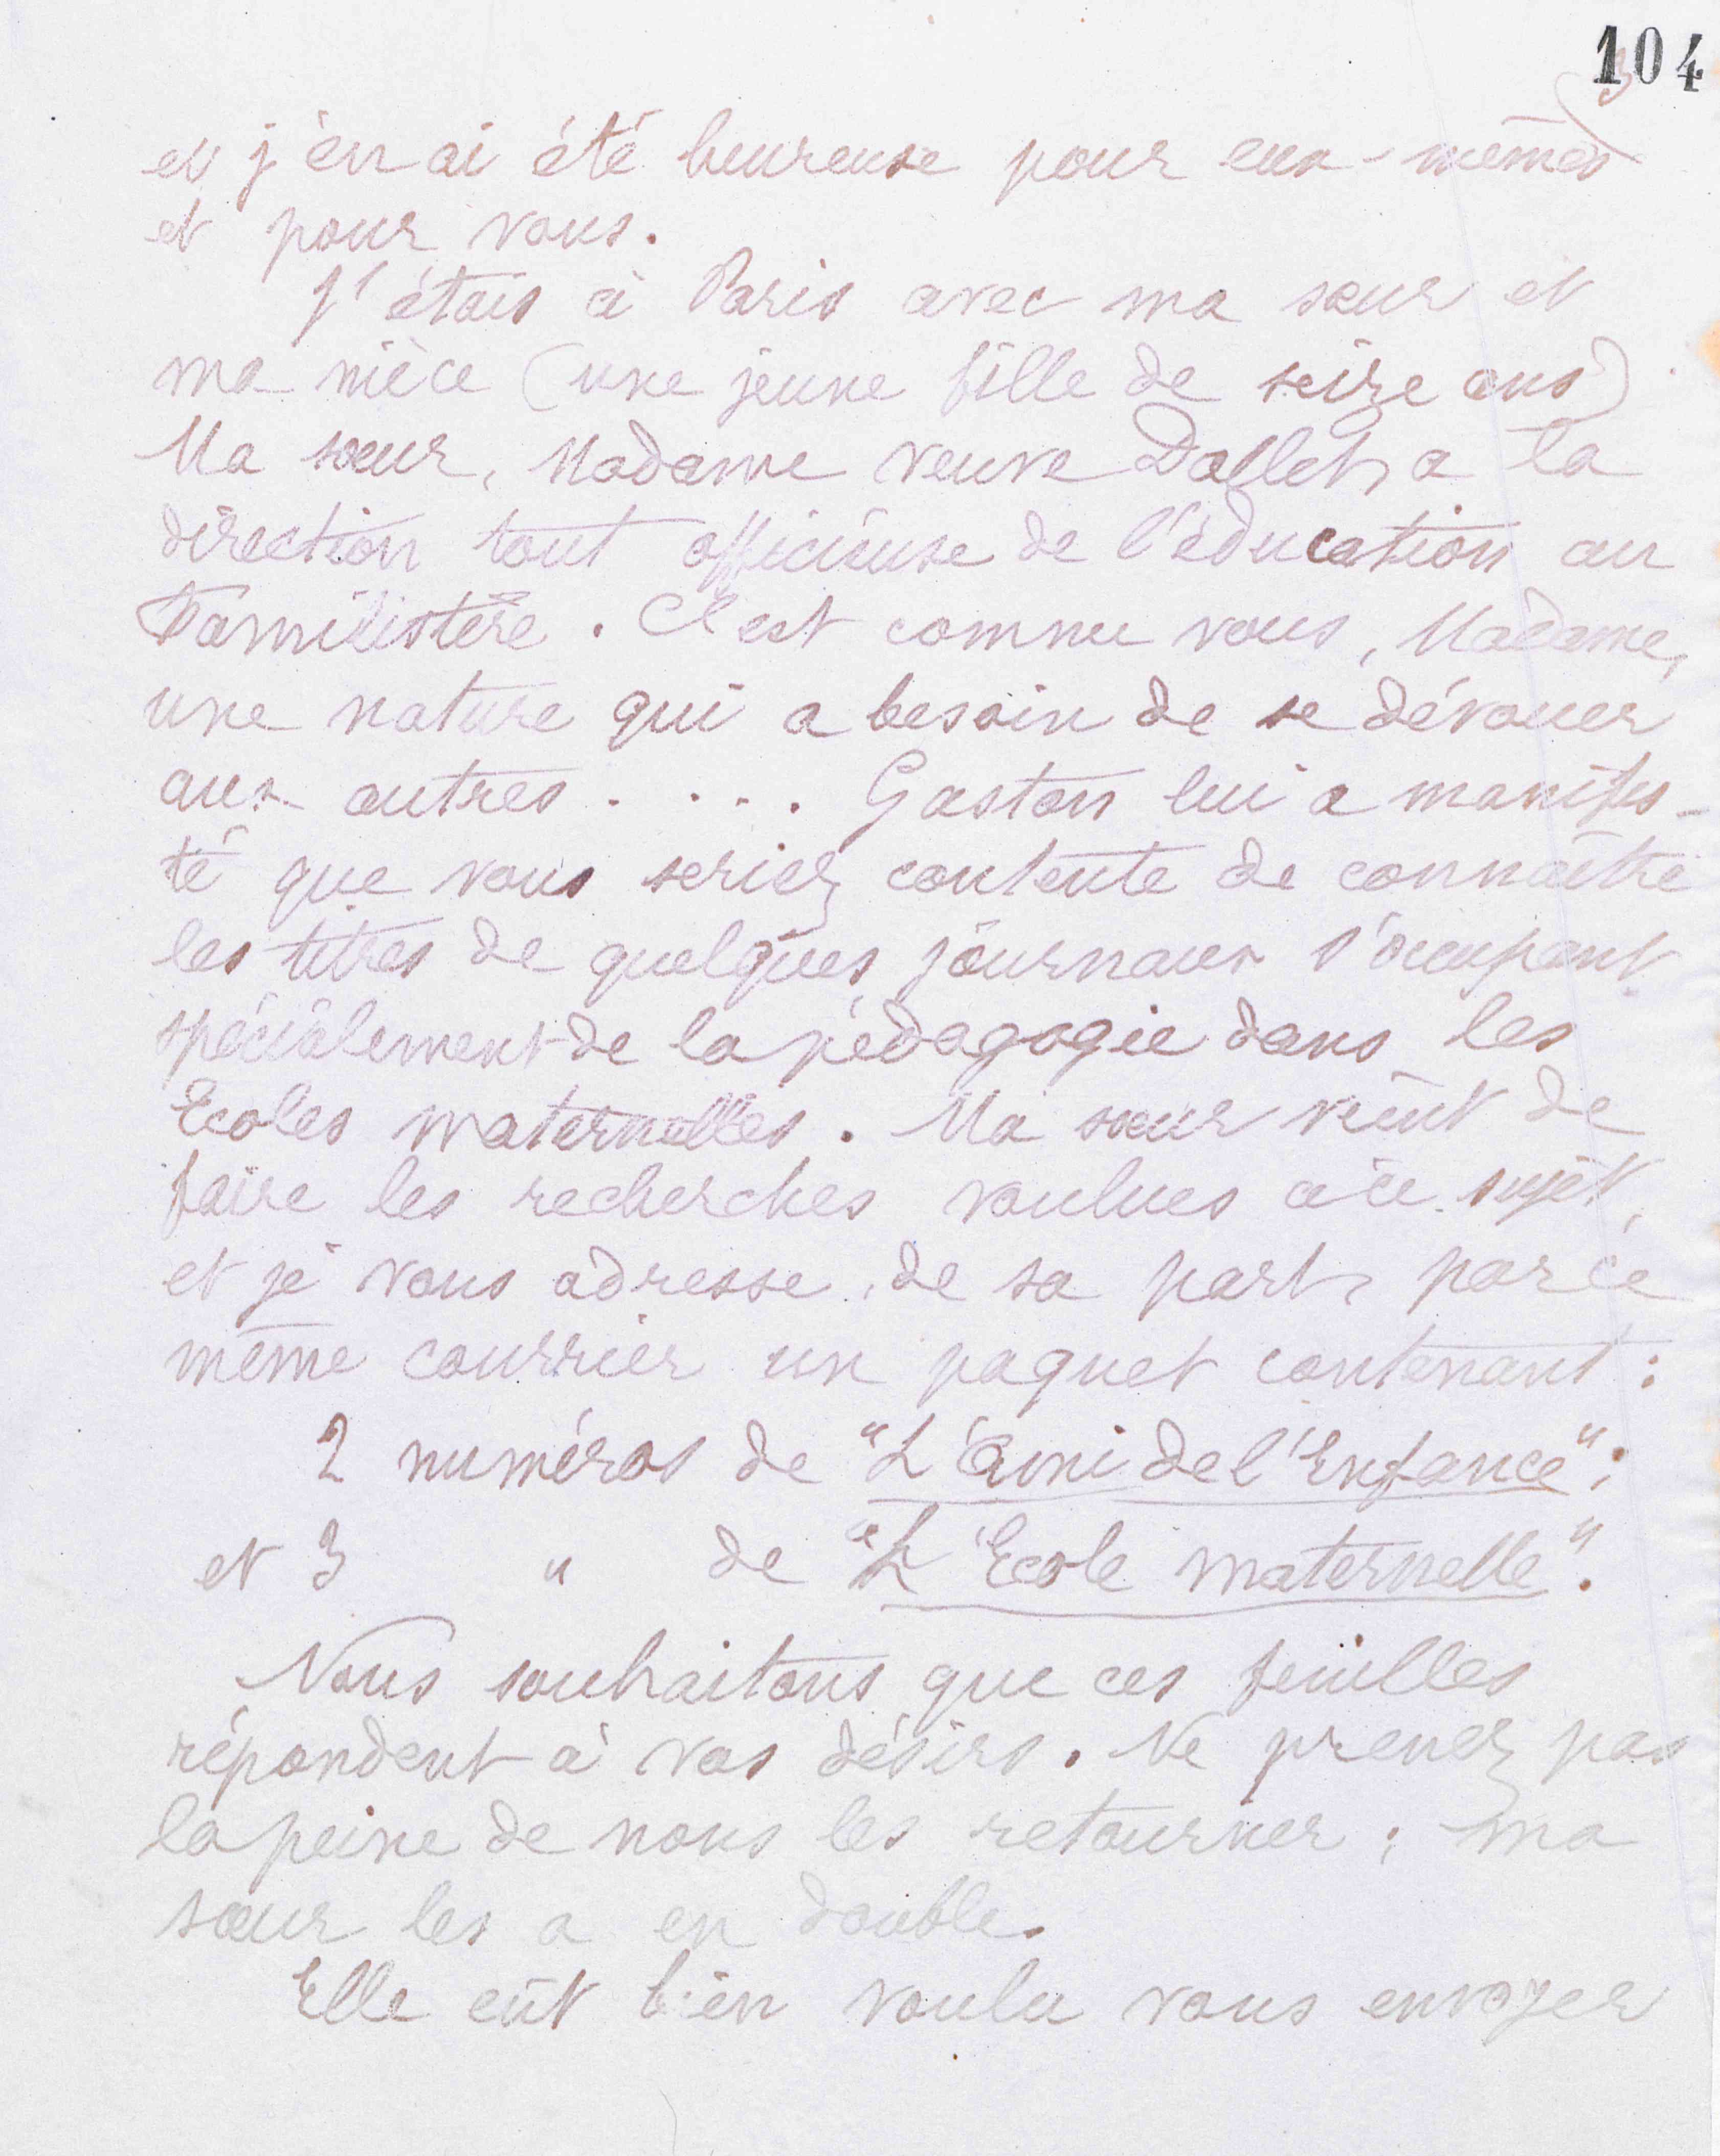 104
3
et j'en ai été heureuse pour eux-mêmes
et pour vous.
J'étais à Paris avec ma sœur et
ma nièce (une jeune fille de seize ans)
Ma sœur, Madame veuve Dallet, a la
direction tout officieuse de l'éducation au
Familistère. C'est comme vous, Madame,
une nature qui a besoin de se dévouer
aux autres. . . . Gaston lui a manifes-
té que vous seriez contente de connaître
les titres de quelques journaux s'occupant
spécialement de la pédagogie dans les
Ecoles maternelles. Ma sœur vient de
faire les recherches voulues à ce sujet,
et je vous adresse, de sa part, par ce
même courrier un paquet contenant :
2 numéros de "L'Ami de l'Enfance";
et 3 " de "L'Ecole maternelle".
Nous souhaitons que ces feuilles
répondent à vos désirs. Ne prenez pas
la peine de nous les retourner ; ma
sœur les a en double.
Elle eût bien voulu vous envoyer